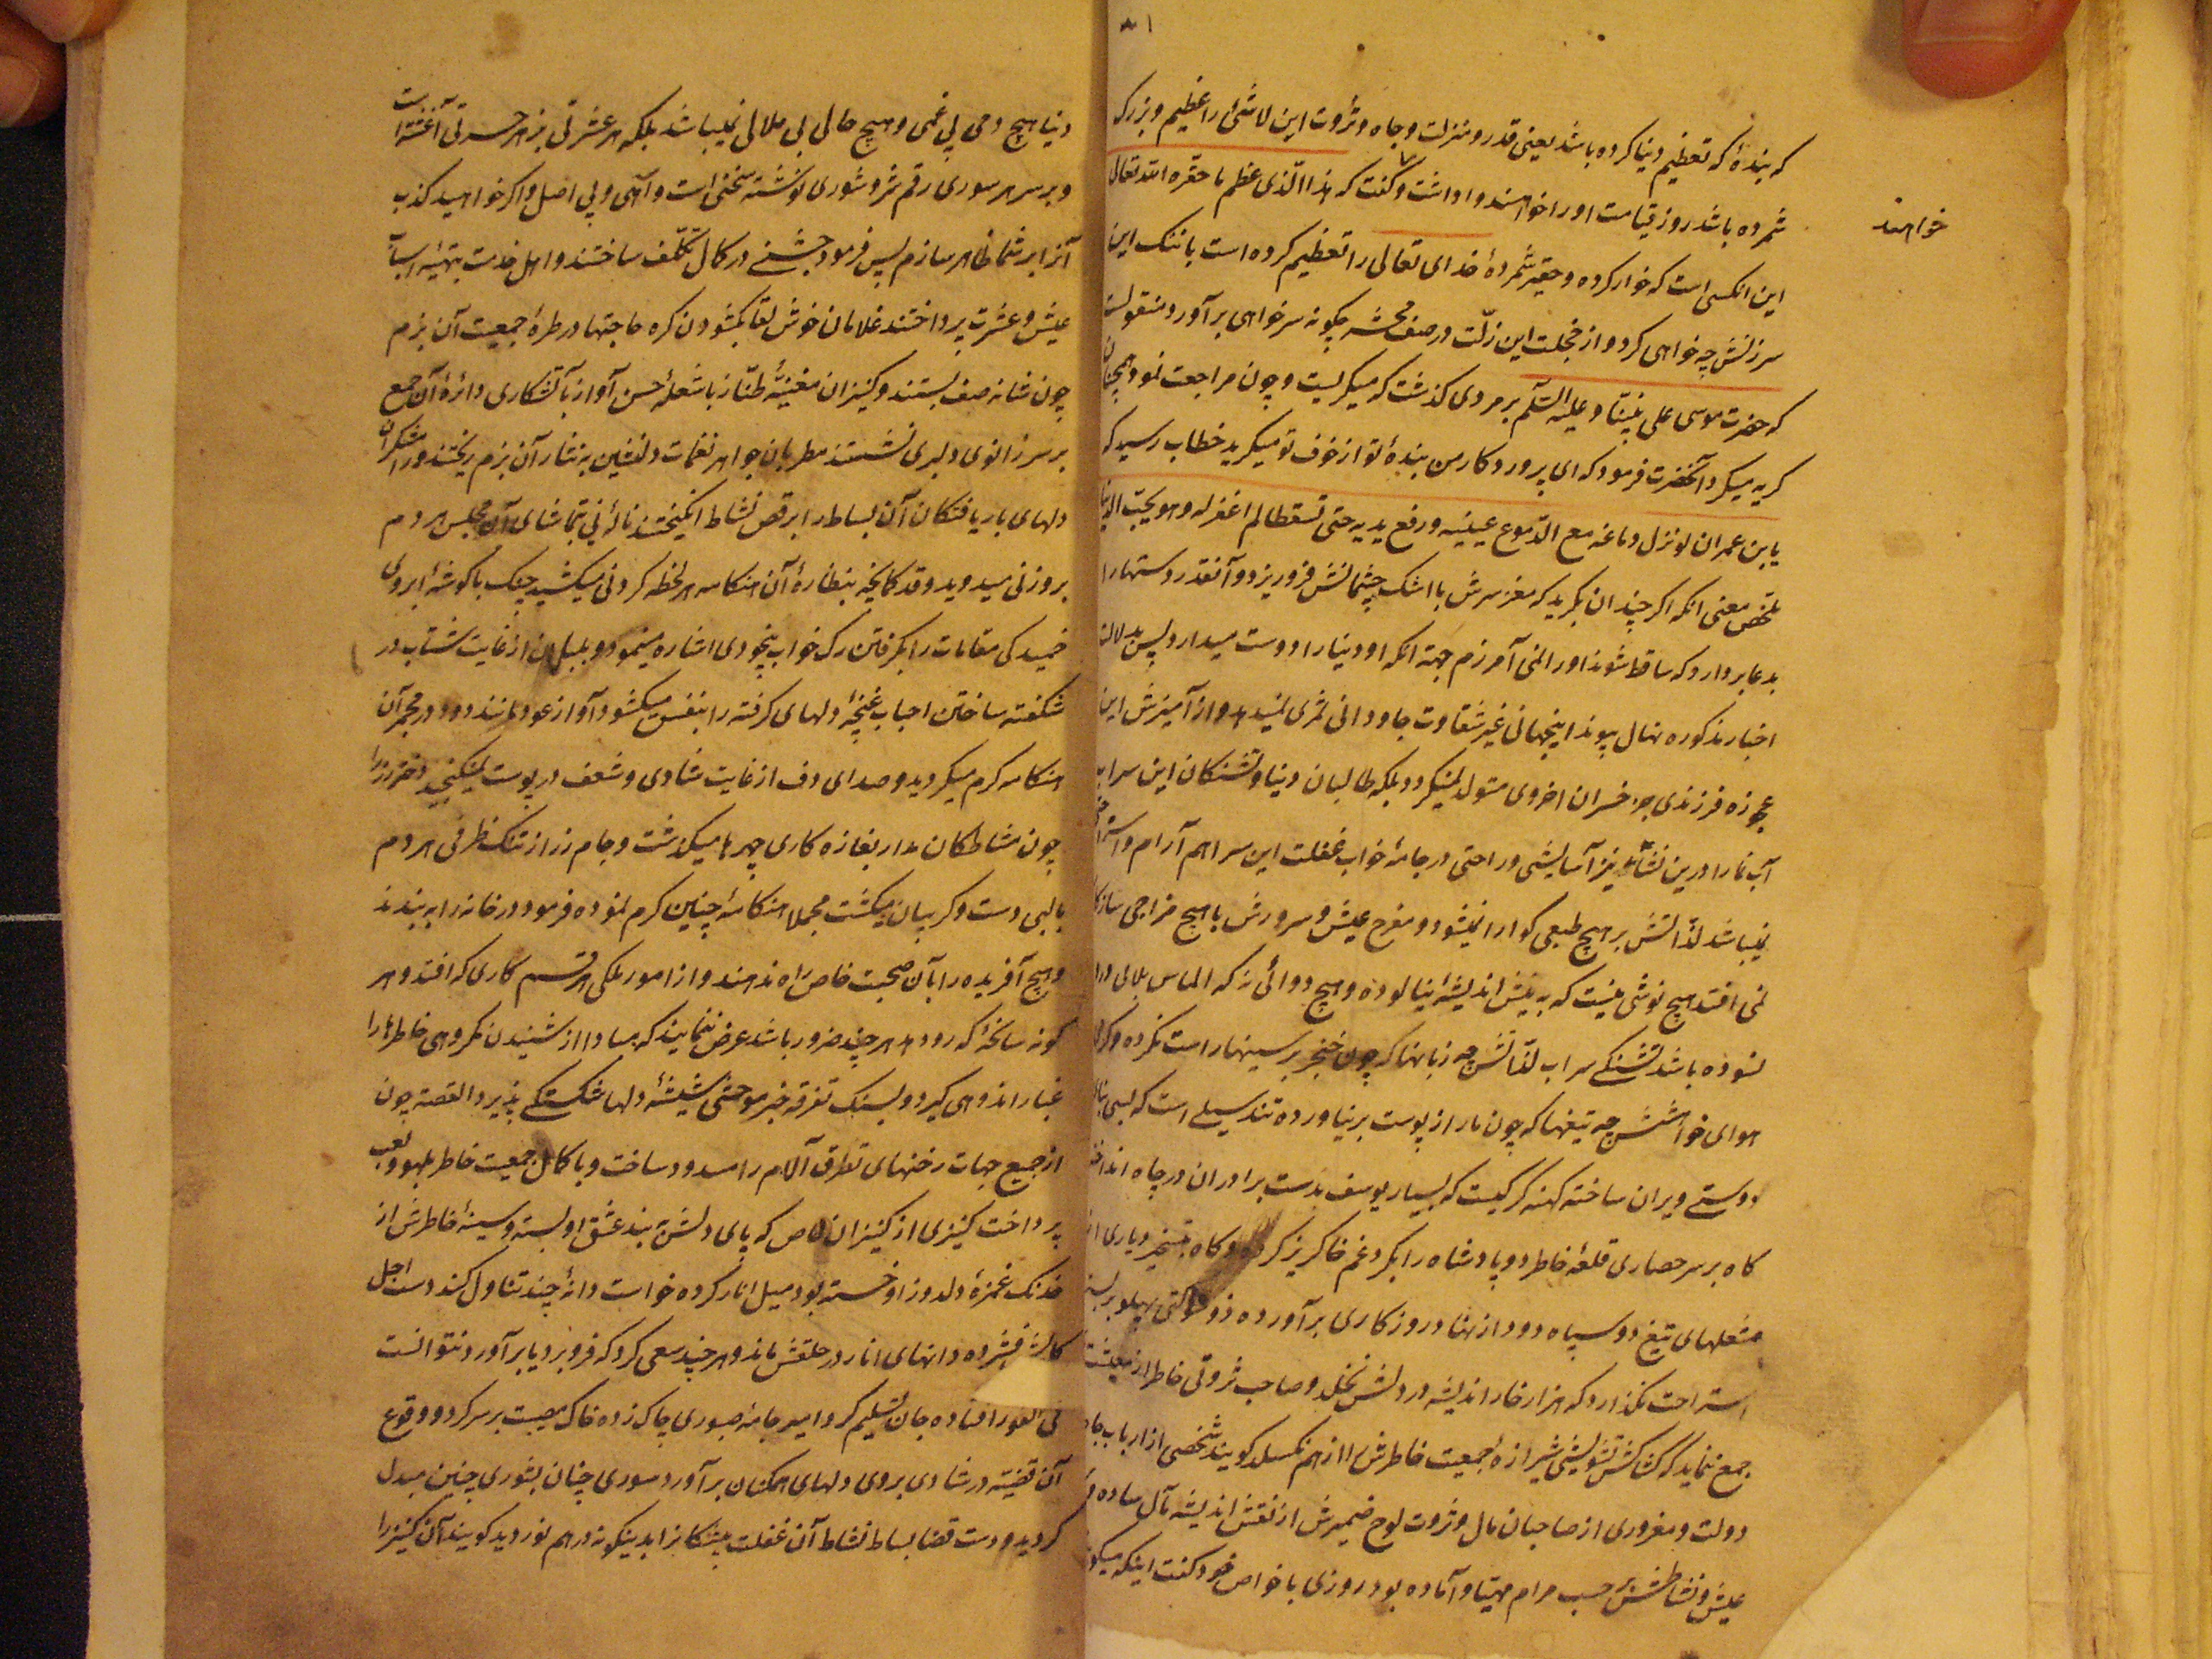 ۸۱
که بندهٔ که تعظیم دنیا کرده باشد یعنی قدر و منزلت و جاه و ثروت این لاشئ را عظیم و بزرک
شمرده باشد روز قیامت او را خواهند واداشت و کفت که هذا الذی عظم ما حقره الله تعالی
خواهند
این انکسی است که خوار کرده و حقیر شمردهٔ خدای تعالی را تعظیم کرده است با ننک این
سرزنش چه خواهی کرد و از خجلت این زلّت در صف محشر چکونه سر خواهی برآورد منقولست
که حضرت موسی علی نبیّنا و علیه السّلم بر مردی کذشت که میکریست و چون مراجعت نمود همچنان
کریه میکرد آنحضرت فرمود که ای پروردکار من بندهٔ تو از خوف تو میکرید خطاب رسید که
یا بن عمران لو نزل دماغه مع الدّموع عینیه و رفع یدیه حتی تسقطا لم اغفر له و هو یحبّ الدنیا
ملخّص معنی انکه اکر چندان بکرید که مغز سرش با اشک چشمانش فرو ریزد و آنقدر دستها را
بدعا بردارد که ساقط شوند او را نمی آمرزم جهة انکه او دنیا را دوست میدارد پس بدلالت
اخبار مذکوره نهال پیوند اینجهانی غیر شقاوت جاودانی ثمری نمیدهد و از آمیزش این
عجوزه فرزندی جز خسران اخروی متولد نمیکردد بلکه طالبان دنیا و تشنکان این سراب
آب نما را درین نشأه نیز آسایشی و راحتی و در جامهٔ خواب غفلت این سرا هم آرام و استراحتی
نمیباشد لذّاتش بر هیچ طبعی کوارا نمیشود و مفرح عیش و سرورش با هیچ مزاجی سازکار
نمی افتد هیچ نوشی نیست که به نیش اندیشهٔ نیالوده و هیچ دوائی نه که الماس بلائی درو
نسوده باشد تشنکی سراب لقاش چه زبانها که چون خنجر بر سینها راست نکرده و
هوای خواهشش چه تیغها که چون مار از پوست بر نیاورده تند سیلی است که بسی
دوستی ویران ساخته کهنه کرکیست که بسیار یوسف بدست برادران در چاه انداخته
کاه بر سر حصاری قلعهٔ خاطر دو پادشاه را بکرد غم خاکریز کرده و کاه بتسخیر دیاری از
مشعلهای تیغ دو سپاه دود از نهاد روزکاری برآورده ذو شوکتی پهلو بر بستر
استراحت نکذارد که هزار خار اندیشه در دلش نخلد و صاحب ثروتی خاطر از معیشت
جمع ننماید که کشاکش تشویشی شیرازهٔ جمعیت خاطرش را از هم نکسلد کویند شخصی از ارباب جاه
دولت و مغروری از صاحبان مال و ثروت لوح ضمیرش از نقش اندیشه مآل ساده و
عیش و نشاطش بر حسب مرام مهیّا و آماده بود روزی با خواص خود کفت اینکه میکویند
دنیا هیچ دمی بی غمی و هیچ حالی بی ملالی نمیباشد بلکه هر عشرتی بزهر حسرتی آغشته است
و بر سر هر سوری رقم شر و شوری نوشته سخنی است واهی و بی اصل و اکر خواهید کذب
آنرا بر شما ظاهر سازم پس فرمود جشنی در کمال تکلّف ساختند و اهل خدمت بتهیّهٔ اسباب
عیش و عشرت پرداختند غلامان خوش لقا بکشودن کره حاجتها در طرهٔ جمعیت آن بزم
چون شانه صف بستند و کنیزان مغنیّهٔ طنّاز با شعلهٔ حسن آواز بآتشکاری دائرهٔ آن جمع
بر سر زانوی دلبری نشستند مطربان جواهر نغمات دلنشین به نثار آن بزم ریختند و رامشکران
دلهای باریافتکان آن بساط را برقص نشاط انکیختند نالهٔ نی بتماشای آن مجلس هر دم
بروزنی میدوید و قد کمانچه بنظارهٔ آن هنکامه هر لحظه کردنی میکشید چنک با کوشهٔ ابروی
خمیدکی مقامات را بکرفتن رک خواب بیخودی اشاره مینمود و بلبلان از غایت شتاب در
شکفته ساختن احباب غنچهٔ دلهای کرفته را بنفس میکشود آواز عود مانند دود در مجمر آن
هنکامه کرم میکردید و صدای دف از غایت شادی و شعف در پوست نمیکنجید دختر رز را
چون مشاطکان مدار بغازه کاری چهرها میکذشت و جام زر از تنک ظرفی هر دم
با لبی دست و کریبان میکشت مجملا هنکامهٔ چنین کرم نموده فرمود در خانه را به بندند
و هیچ آفریده را بآن صحبت خاص راه ندهند و از امور ملکی هر قسم کاری که افتد و هر
کونه سانحهٔ که رو دهد هر چند ضرور باشد عرض ننمایند که مبادا از شنیدن مکروهی خاطرها را
غبار اندوهی کیرد و بسنک تفرقه خبر موحشی شیشهٔ دلها شکستکی پذیرد القصه چون
از جمیع جهات رخنهای تطرق آلام را مسدود ساخت و با کمال جمعیت خاطر بلهو و لعب
پرداخت کنیزی از کنیزان خاص که پای دلش بند عشق او بسته و سینهٔ خاطرش از
خدنک غمزهٔ دلدوز او خسته بود میل انار کرده خواست دانهٔ چند تناول کند دست اجل
کلویش فشرده دانهای انار در حلقش ماند و هر چند سعی کرد که فرو برد یا برآورد نتوانست
فی الفور افتاده جان تسلیم کرد امیر جامهٔ صبوری چاک زده خاک مصیبت بر سر کرد و وقوع
آن قضیّه در شادی بروی دلهای همکنان برآورد سوری چنان بشوری چنین مبدل
کردید و دست قضا بساط نشاط آن غفلت پیشکان را بدینکونه در هم نوردید کویند آن کنیز را